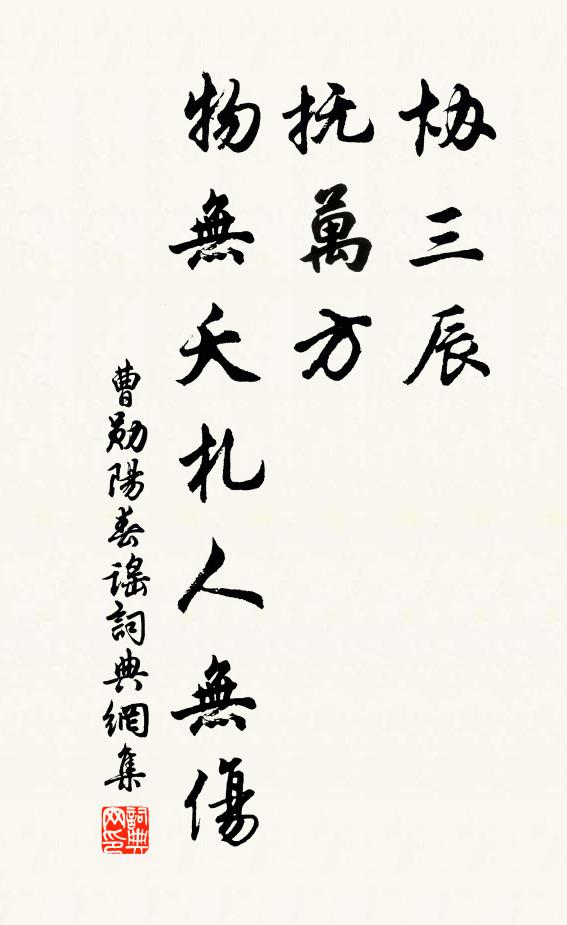 协三辰
抚萬方
物無夭札人無傷
曹勛陽春謠詞典網集
詞典网印